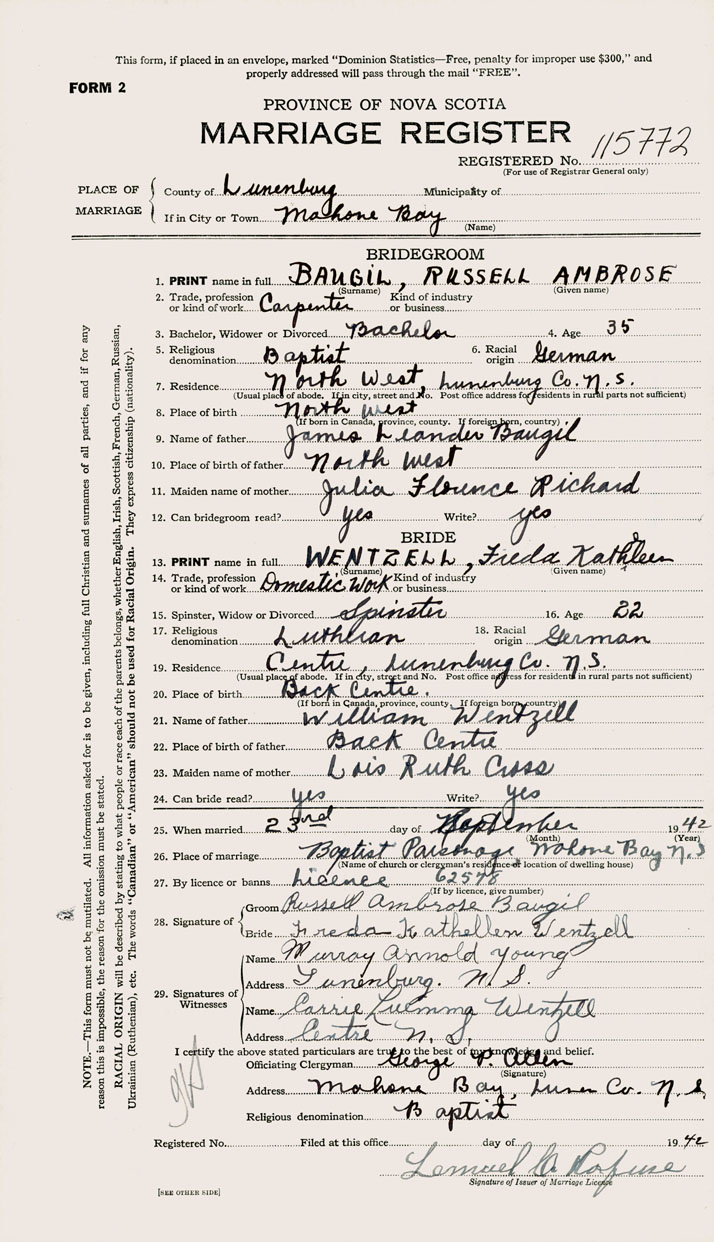 This form, if placed in an envelope, marked "Dominion Statistics—Free, penalty for improper use $300," and
properly addressed will pass through the mail "FREE".
FORM 2
PROVINCE OF NOVA SCOTIA
MARRIAGE REGISTER
REGISTERED No. 115772
(For use of Registrar General only)
PLACE OF MARRIAGE
County of Lunenburg Municipality of
If in City or Town Mahone Bay
(Name)
BRIDEGROOM
1. PRINT name in full BAUGIL, RUSSELL AMBROSE
(Surname) (Given name)
2. Trade, profession or kind of work Carpenter Kind of industry or business
3. Bachelor, Widower or Divorced Bachelor 4. Age 35
5. Religious denomination Baptist 6. Racial origin German
7. Residence North West, Lunenburg Co. N.S.
(Usual place of abode. If in city, street and No. Post office address for residents in rural parts not sufficient)
8. Place of birth North West
(If born in Canada, province, county. If foreign born, country)
9. Name of father James Leander Baugil
10. Place of birth of father North West
11. Maiden name of mother Julia Florence Richard
12. Can bridegroom read? yes Write? yes
BRIDE
13. PRINT name in full WENTZELL, Freda Kathleen
(Surname) (Given name)
14. Trade, profession or kind of work Domestic Work Kind of industry or business
15. Spinster, Widow or Divorced Spinster 16. Age 22
17. Religious denomination Lutherian 18. Racial origin German
19. Residence Centre, Lunenburg Co. N.S.
(Usual place of abode. If in city, street and No. Post office address for residents in rural parts not sufficient)
20. Place of birth Back Centre.
(If born in Canada, province, county. If foreign born, country)
21. Name of father William Wentzell
22. Place of birth of father Back Centre
23. Maiden name of mother Lois Ruth Cross
24. Can bride read? yes Write? yes
25. When married 23rd day of September 1942
(Month) (Year)
26. Place of marriage Baptist Parsonage, Mahone Bay N.S
(Name of church or clergyman's residence or location of dwelling house)
27. By licence or banns Licence 62578
(If by licence, give number)
28. Signature of
Groom Russell Ambrose Baugil
Bride Freda Kathellen Wentzell
29. Signatures of Witnesses
Name Murray Arnold Young
Address Lunenburg. N.S.
Name Carrie Luemma Wentzell
Address Centre N.S.
I certify the above stated particulars are true to the best of my knowledge and belief.
Officiating Clergyman George P. Allen
(Signature)
Address Mahone Bay, Lunen Co. N.S.
Religious denomination Baptist
Registered No. Filed at this office day of 1942
Lemuel Rofuse
Signature of Issuer of Marriage Licence
[SEE OTHER SIDE]
NOTE.—This form must not be mutilated. All information asked for is to be given, including full Christian and surnames of all parties, and if for any
reason this is impossible, the reason for the omission must be stated.
RACIAL ORIGIN will be described by stating to what people or race each of the parents belongs, whether English, Irish, Scottish, French, German, Russian,
Ukrainian (Ruthenian), etc. The words "Canadian" or "American" should not be used for Racial Origin. They express citizenship (nationality).